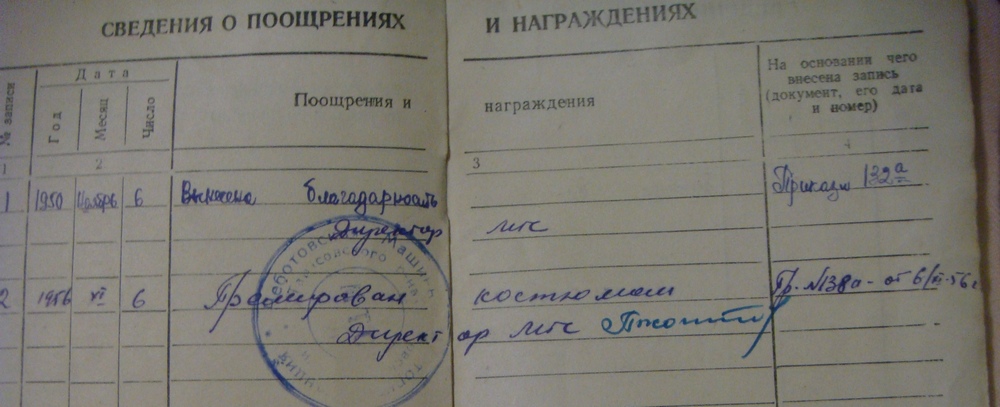 СВЕДЕНИЯ О ПООЩРЕНИЯХ И НАГРАЖДЕНИЯХ
№ записи
Дата
Год
Месяц
Число
Поощрения и награждения
На основании чего
внесена запись
(документ, его дата
и номер)
1 2 3 4
1 1950 Ноябрь 6 Вынесена благодарность Приказ 132а
Директор МТС
2 1956 XI 6 Премирован костюмом Пр. №138а - от 6/XI-56г
Директор МТС